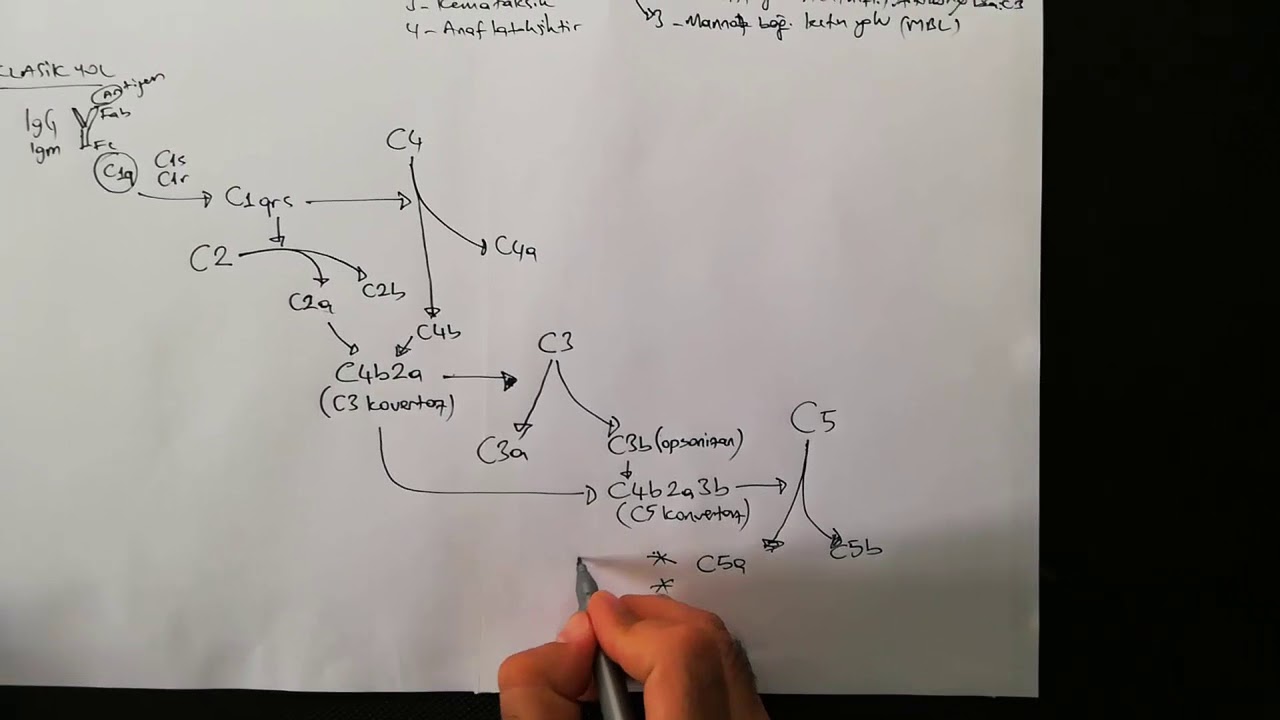 3 - Kemotaksik
4 - Anaflatoksiktir
3 - Mannoz bağ. lektin yolu (MBL)
KLASİK YOL
Antigen
Fab
IgG
Igm
Fc
C1q
C1s
C1r
C1qrs
C4
C4a
C2
C2a
C2b
C4b
C4b2a
(C3 kovertaz)
C3
C3a
C3b (opsonizan)
C4b2a3b
(C5 konvertaz)
C5
C5a
C5b